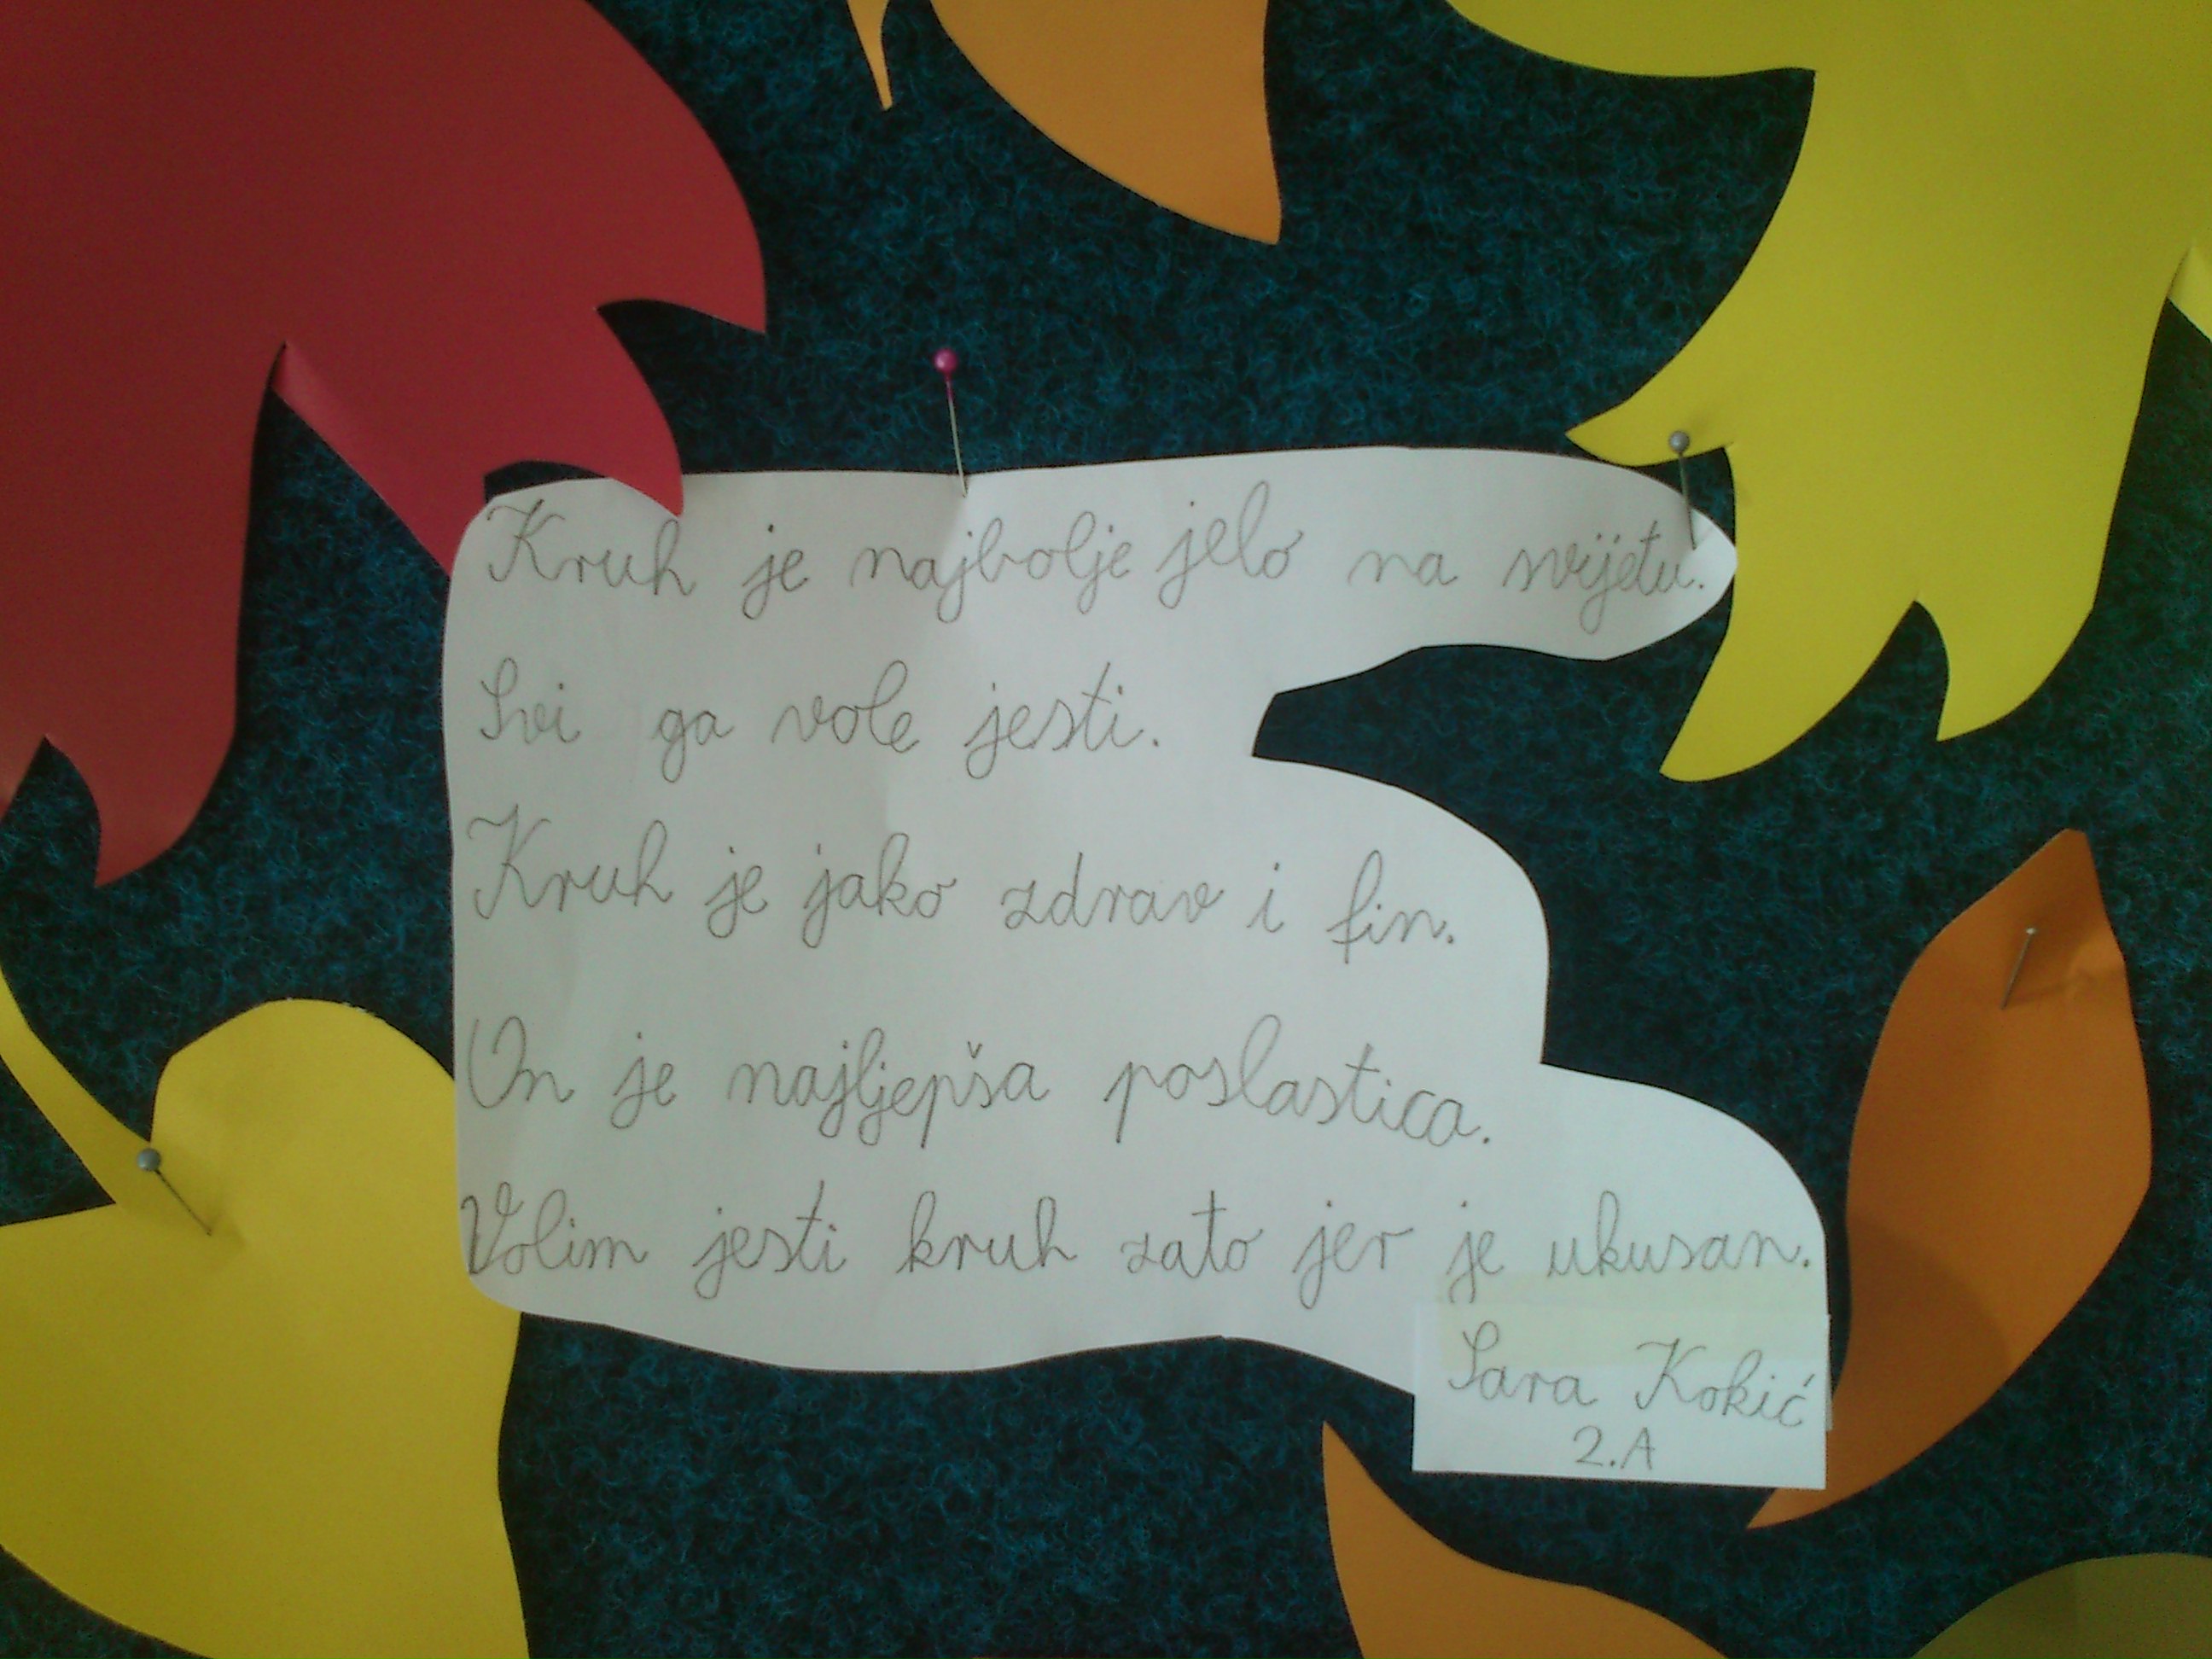 Kruh je najbolje jelo na svijetu.
Svi ga vole jesti.
Kruh je jako zdrav i fin.
On je najljepša poslastica.
Volim jesti kruh zato jer je ukusan.
Sara Kokić
2.A